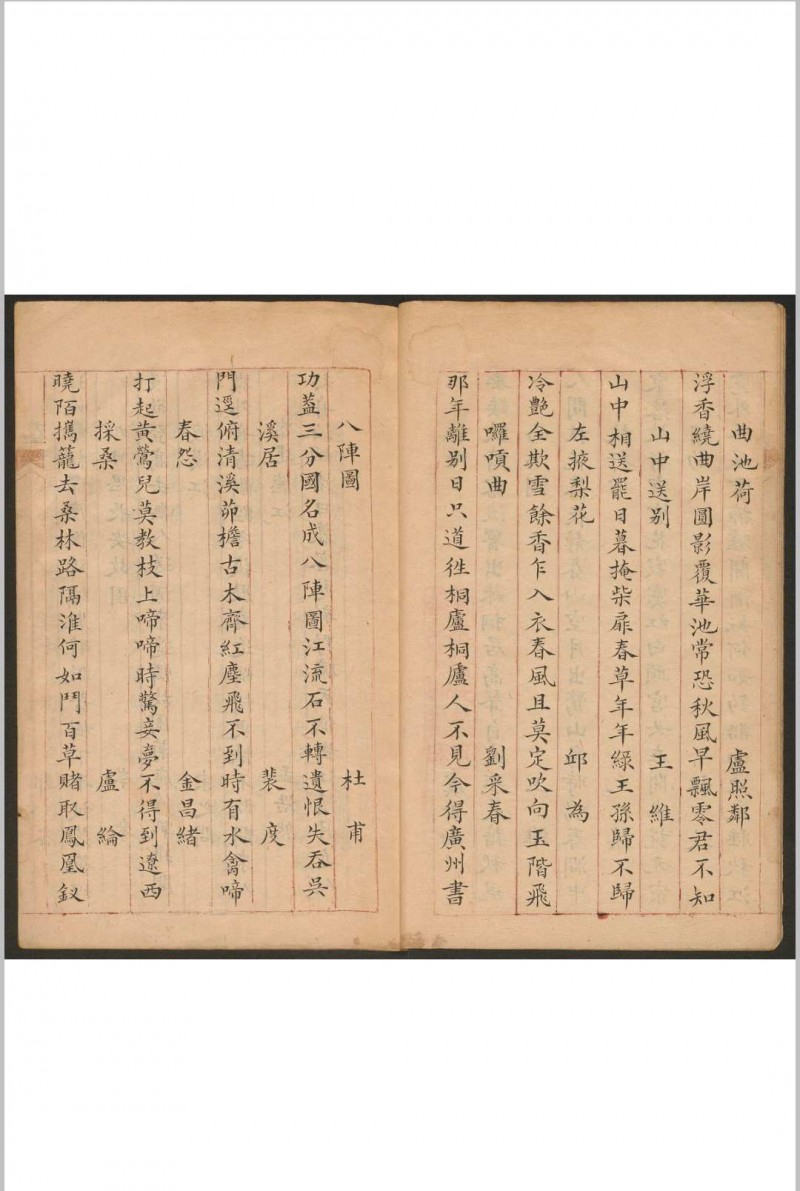 曲池荷 盧照鄰
浮香繞曲岸圓影覆華池常恐秋風早飄零君不知
山中送別 王維
山中相送罷日暮掩柴扉春草年年綠王孫歸不歸
左掖梨花 邱為
冷艷全欺雪餘香乍入衣春風且莫定吹向玉階飛
囉嗊曲 劉采春
那年離別日只道往桐廬桐廬人不見今得廣州書
八陣圖 杜甫
功蓋三分國名成八陣圖江流石不轉遺恨失吞吳
溪居 裴度
門逕俯清溪茆檐古木齊紅塵飛不到時有水禽啼
春怨 金昌緒
打起黃鶯兒莫教枝上啼啼時驚妾夢不得到遼西
採桑 盧綸
曉陌攜籠去桑林路隔淮何如鬥百草賭取鳳凰釵